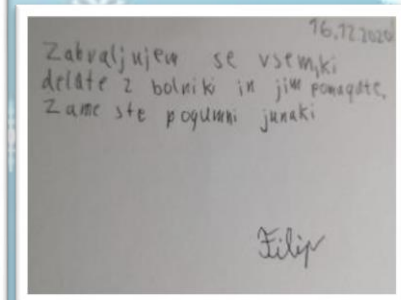 16.12.2020
Zahvaljujem se vsem, ki
delate z bolniki in jim pomagate,
Zame ste pogumni junaki
Filip